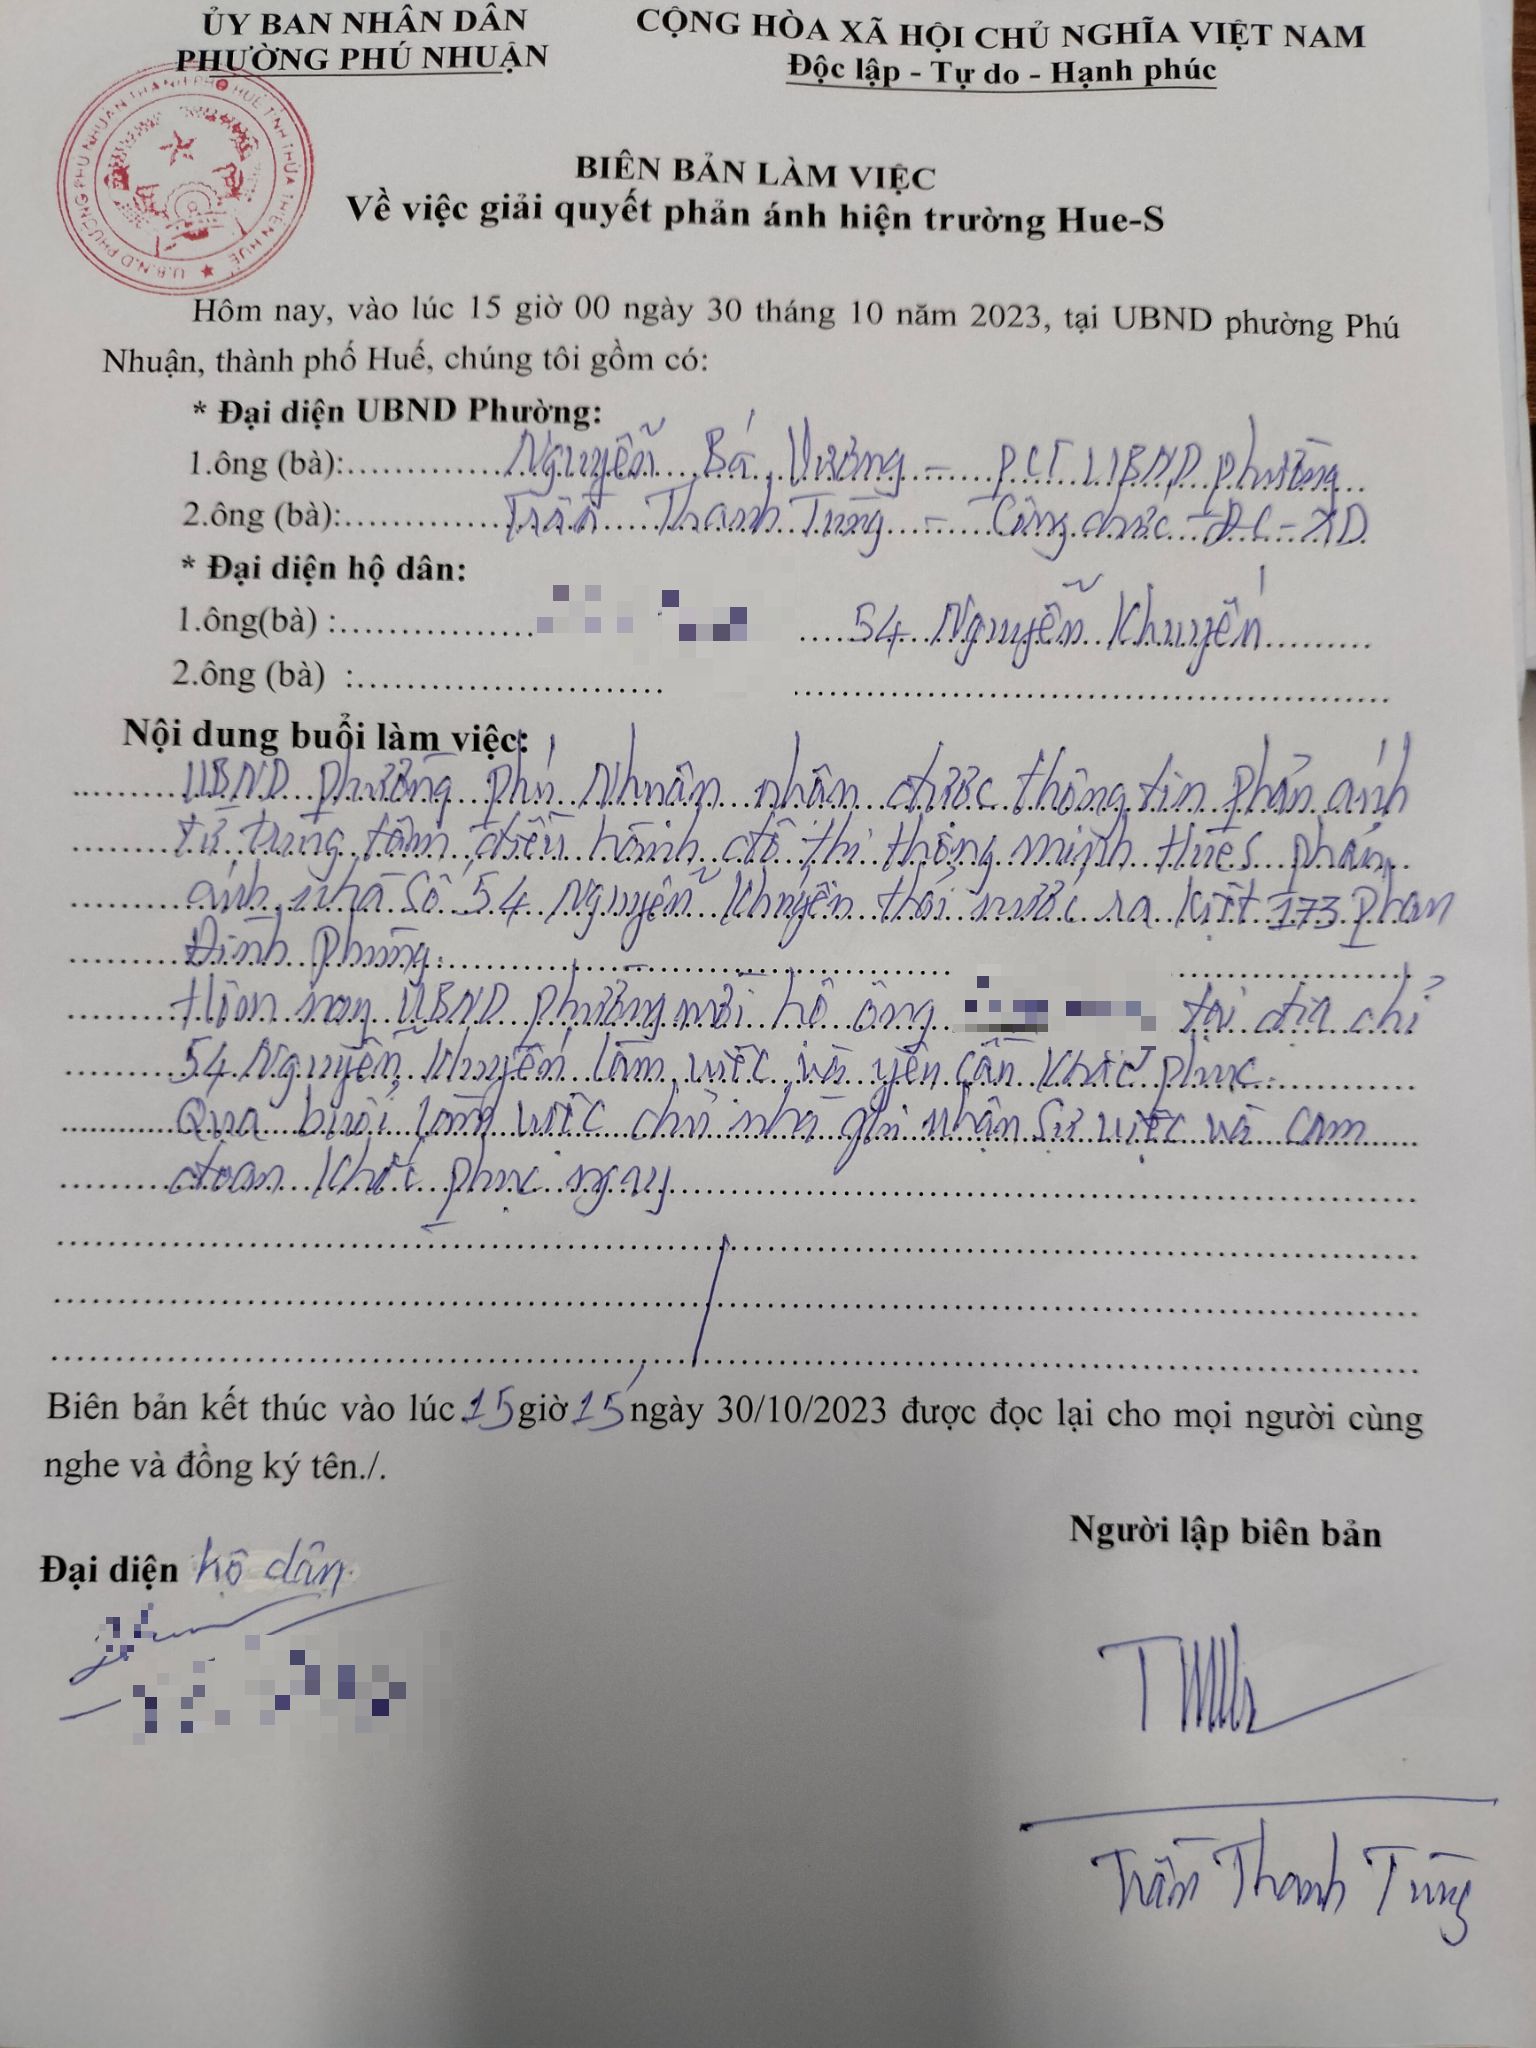 ỦY BAN NHÂN DÂN
PHƯỜNG PHÚ NHUẬN
CỘNG HÒA XÃ HỘI CHỦ NGHĨA VIỆT NAM
Độc lập - Tự do - Hạnh phúc
U.B.N.D PHƯỜNG PHÚ NHUẬN THÀNH PHỐ HUẾ TỈNH THỪA THIÊN HUẾ
BIÊN BẢN LÀM VIỆC
Về việc giải quyết phản ánh hiện trường Hue-S
Hôm nay, vào lúc 15 giờ 00 ngày 30 tháng 10 năm 2023, tại UBND phường Phú
Nhuận, thành phố Huế, chúng tôi gồm có:
* Đại diện UBND Phường:
1.ông (bà):.............Nguyễn Bá Vương - PCT UBND phường
2.ông (bà):.............Trần Thanh Tùng - Công chức ĐC-XD
* Đại diện hộ dân:
1.ông(bà) :................ 54 Nguyễn Khuyến
2.ông (bà) :..........................
Nội dung buổi làm việc:
UBND phường Phú Nhuận nhận được thông tin phản ánh
từ trung tâm điều hành đô thị thông minh HueS phản
ánh nhà số 54 Nguyễn Khuyến thải nước ra kiệt 173 Phan
Đình Phùng.
Hôm nay UBND phường mời hộ ông tại địa chỉ
54 Nguyễn Khuyến làm việc và yêu cầu khắc phục.
Qua buổi làm việc chủ nhà ghi nhận sự việc và cam
đoan khắc phục ngay
Biên bản kết thúc vào lúc 15 giờ 15' ngày 30/10/2023 được đọc lại cho mọi người cùng
nghe và đồng ký tên./.
Đại diện hộ dân
Người lập biên bản
Trần Thanh Tùng